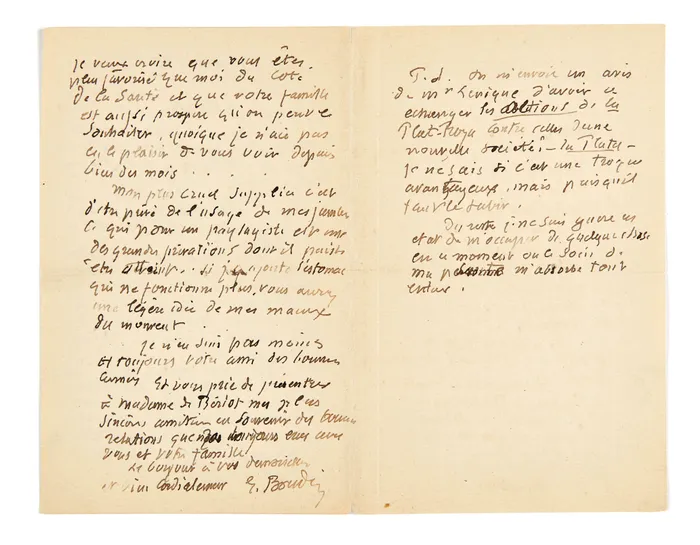 je veux croire que vous êtes
plus favorisé que moi du côté
de la Santé et que votre famille
est aussi prospère qu'on peut le
souhaiter, quoique je n'aie pas
eu le plaisir de vous voir depuis
bien des mois . . .
Mon plus cruel supplice c'est
d'être privé de l'usage de mes jambes
ce qui pour un paysagiste est une
des grandes privations dont il puisse
être atteint . . Si j'y ajoute l'estomac
qui ne fonctionne plus, vous aurez
une légère idée de mes maux
du moment . .
Je n'en suis pas moins
et toujours votre ami des bonnes
années Et vous prie de présenter
à Madame de Bériot mes plus
sincères amitiés en souvenir des bonnes
relations que toujours eues avec
vous et votre famille
Le bonjour à vos demoiselles
et bien cordialement E. Boudin
On m'envoie un avis
de Mr d'avoir à
échanger les actions de la
contre celles d'une
nouvelle société - la Plata -
je ne sais si c'est une troque
avantageuse, mais puisqu'il
faut le subir .
Du reste je ne suis guère en
état de m'occuper de quelque chose
en ce moment où le soin de
ma m'absorbe tout
entier .